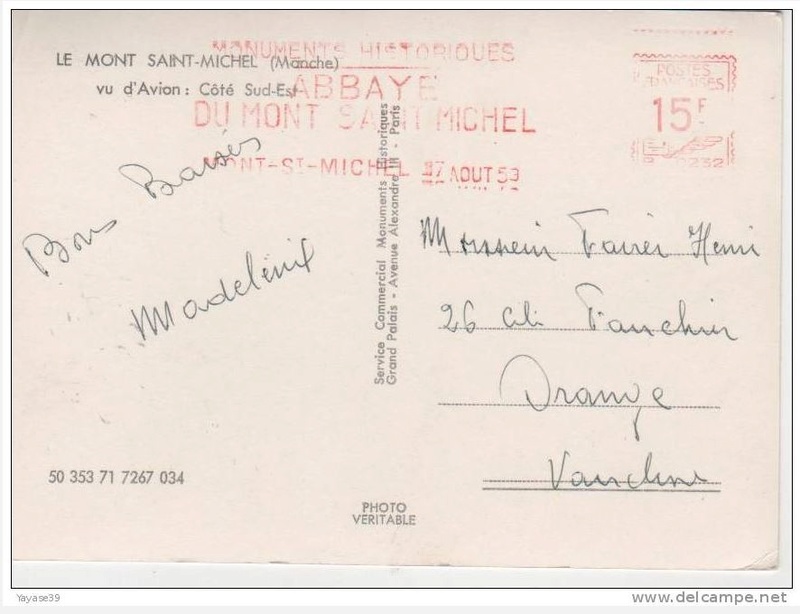 LE MONT SAINT-MICHEL (Manche)
vu d'Avion : Côté Sud-Est
MONUMENTS HISTORIQUES
ABBAYE
DU MONT SAINT MICHEL
MONT-ST-MICHEL 17 AOUT 59
POSTES
FRANÇAISES
15F
0232
Bons Baisers
Madeleine
Service Commercial Monuments Historiques
Grand Palais - Avenue Alexandre III - Paris
Monsieur Henri
26 Cité
Orange
Vaucluse
50 353 71 7267 034
PHOTO
VERITABLE
Yayase39
delcampe.net